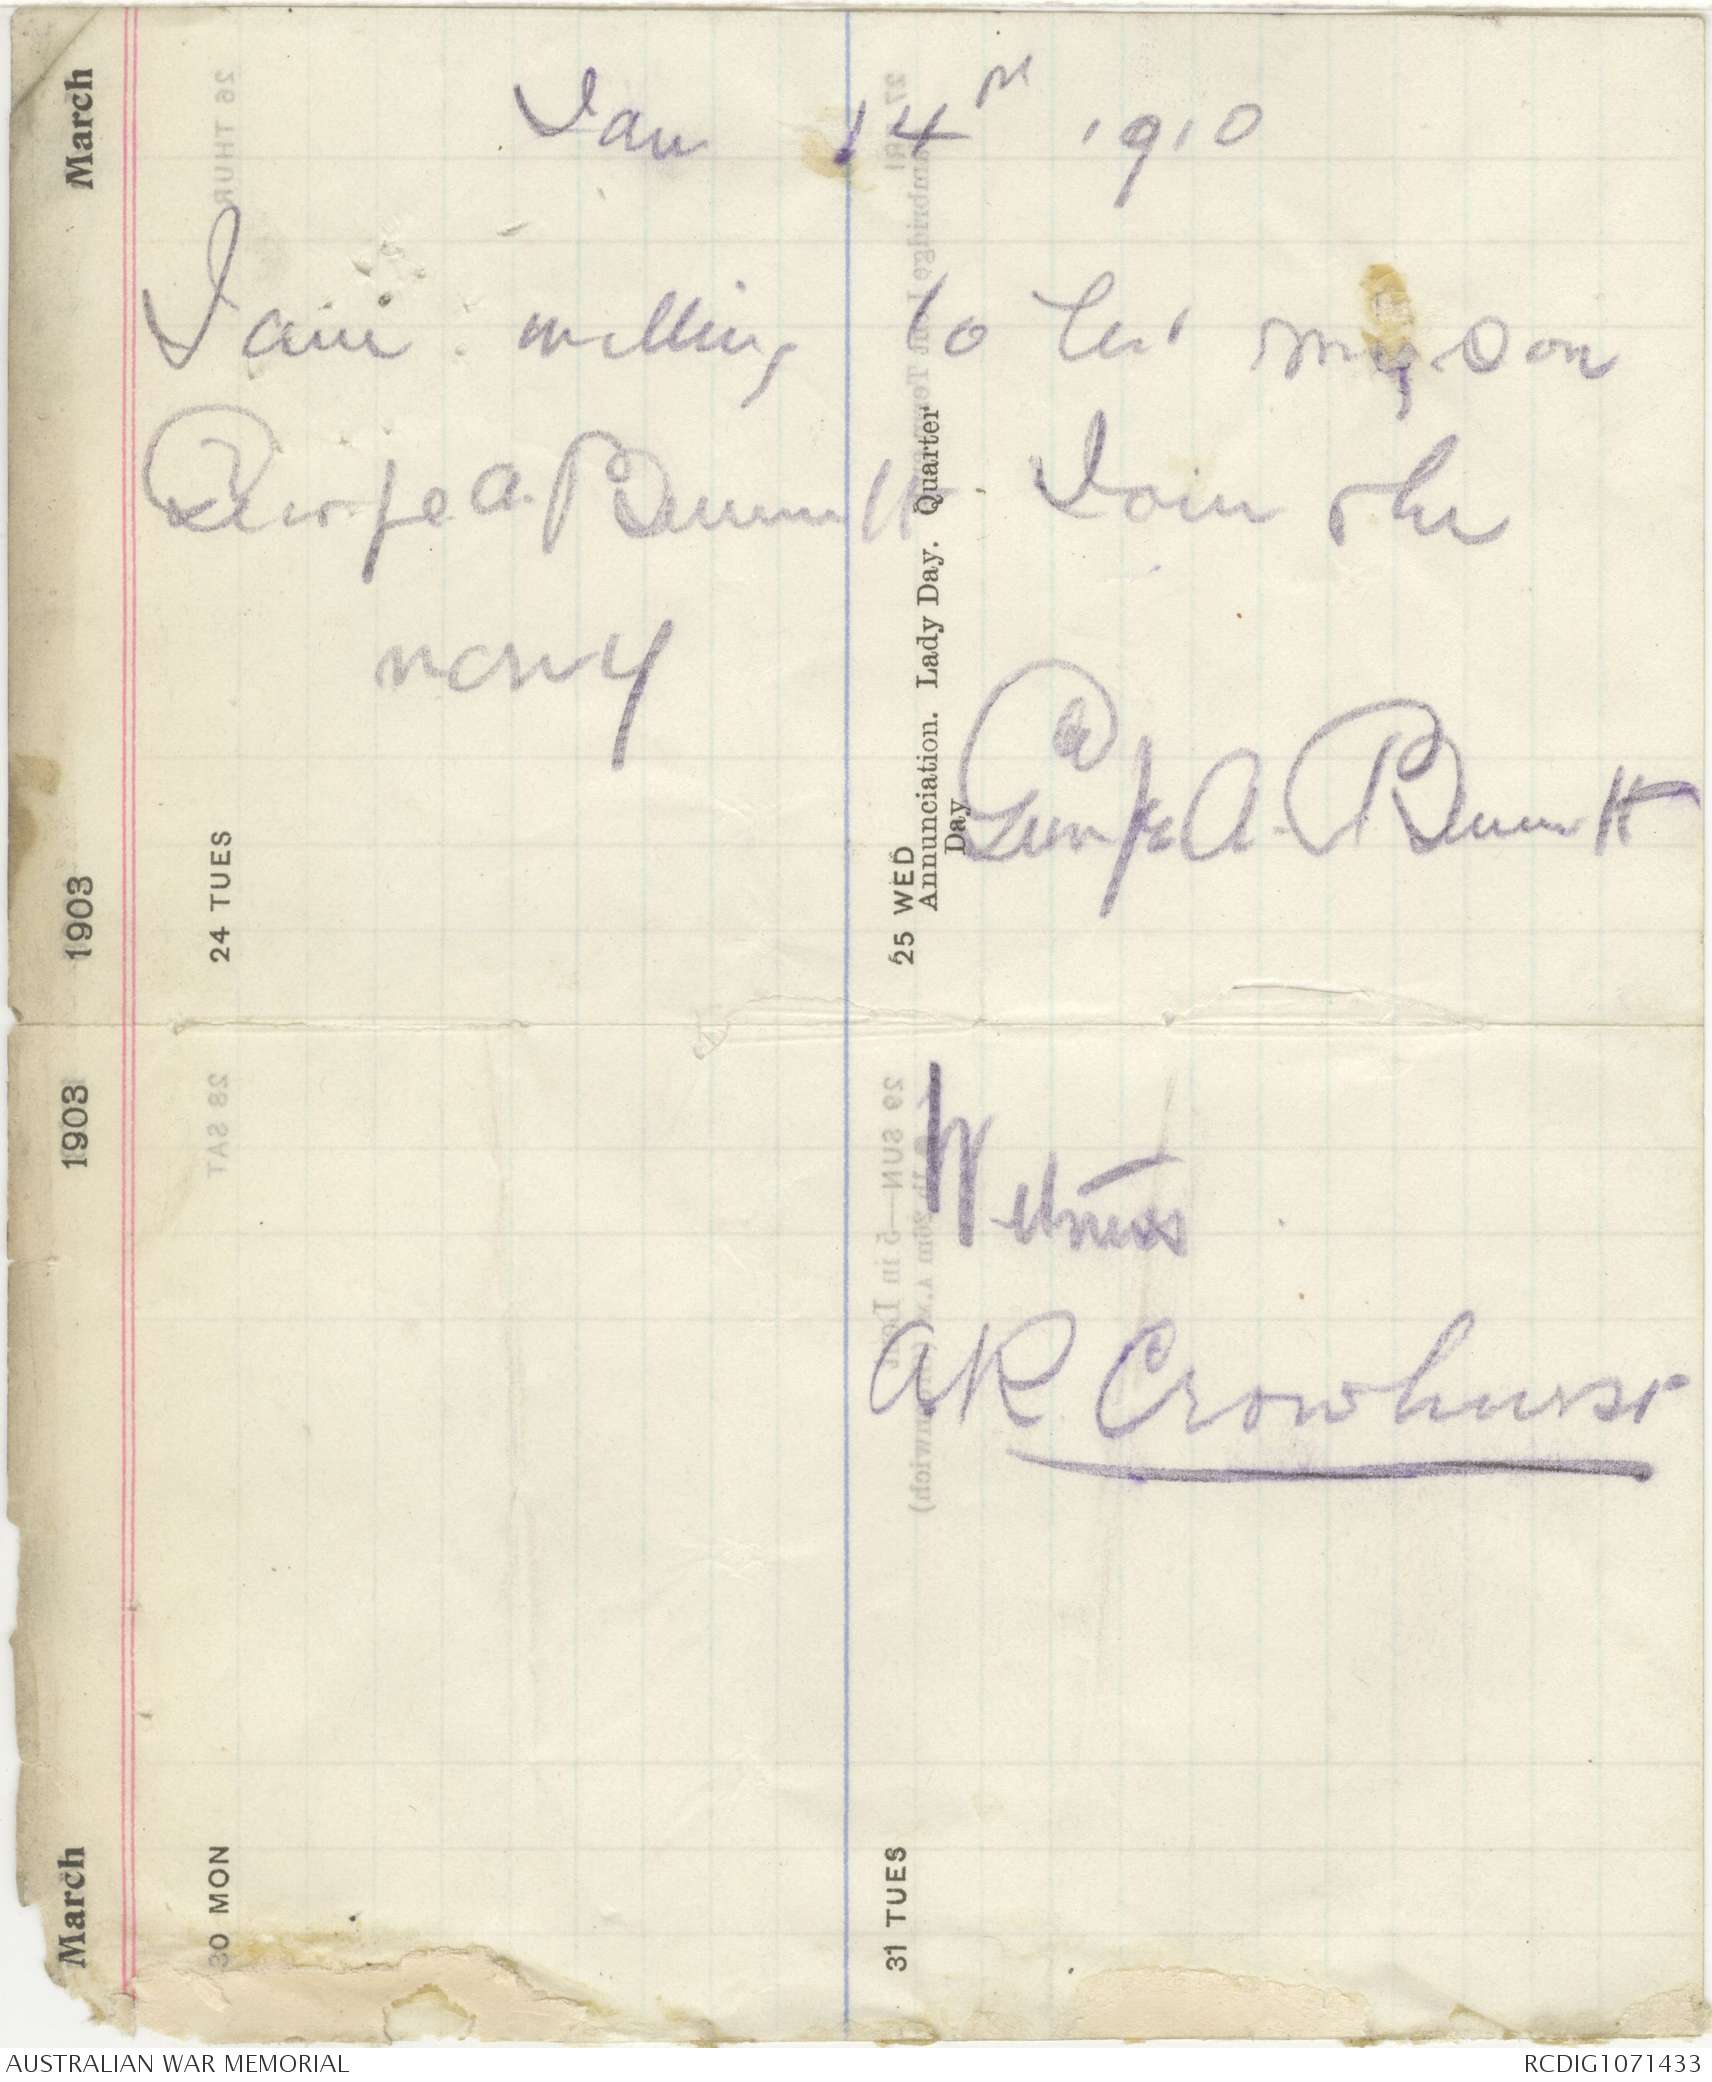 March
1903
26 THUR
24 TUES
27 FRI
25 WED
Annunciation. Lady Day. Quarter
Day
Jan 14th 1910
I am willing to let my son
George A. Bennett Join the
navy
George A. Bennett
1903
March
28 SAT
30 MON
29 SUN—5 in Lent
31 TUES
Witness
AR Crowhurst
AUSTRALIAN WAR MEMORIAL
RCDIG1071433